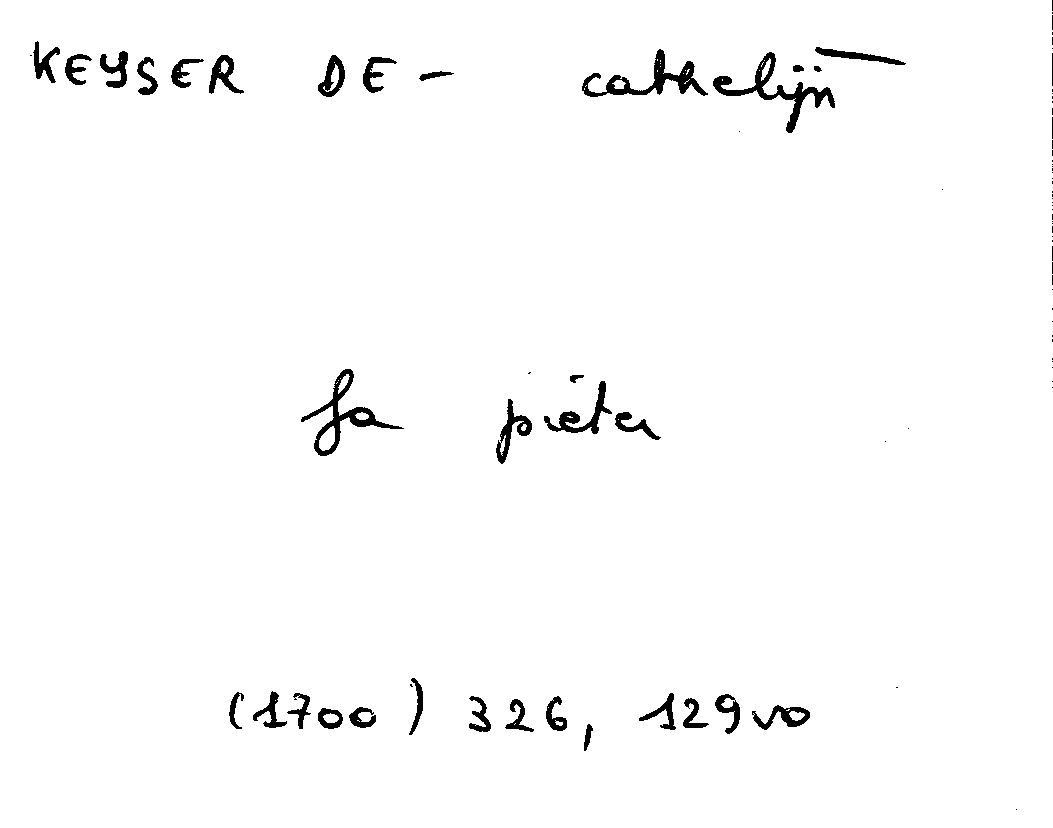 KEYSER DE - cathelijn
fa pieter
(1700) 326, 129vo